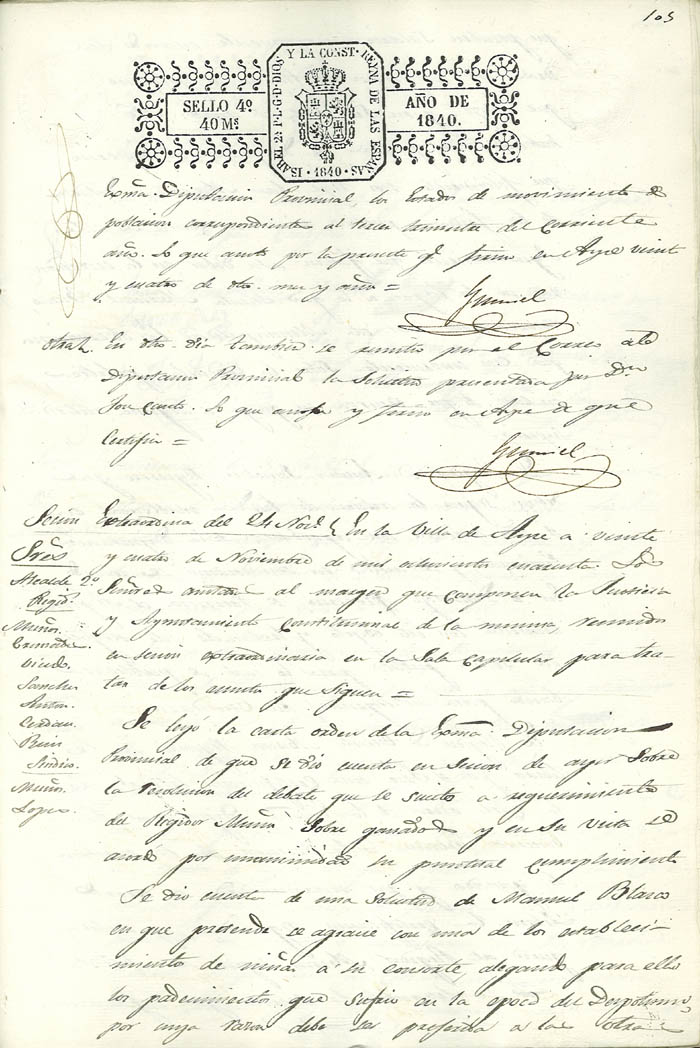 105
SELLO 4º
40 Ms
ISABEL 2ª P. L. G. D. DIOS Y LA CONST. REYNA DE LAS ESPAÑAS
· 1840 ·
AÑO DE
1840.
Exmã Diputacion Provincial, los Estados de movimiento de
poblacion correspondiente al tercer trimestre del corriente
año. Lo que anoto por la presente q.e firmo en Aspe veint
y cuatro de dho. mes y año =
Gumiel
Otra En dho. dia tambien se remitio por el Correo a la
Diputacion Provincial la Solicitud presentada por Dn
Lo que anoto y firmo en Aspe de que
Certifico =
Gumiel
Secion Extraordina del 24 Nove En la Villa de Aspe a veinte
y cuatro de Noviembre de mil ochocientos cuarenta. Los
Señores anotados al margen que componen la Justicia
y Ayuntamiento Constitucional de la misma, reunidos
en secion extraordinaria en la Sala capitular para tra-
tar de los asuntos que siguen =
Sres
Alcalde 2º
Regid.
Muñoz.
Cremades.
Vicedo.
Sanchez
Anton.
Cerdan.
Ruiz
Sindico.
Muñoz.
Lopez.
Se leyó la carta orden de la Exmã Diputacion
Provincial de que se dio cuenta en Secion de ayer Sobre
la resolucion del debate que se suscito a requerimiento
del Regidor Muñoz Sobre ganados y en su vista se
acordó por unanimidad su puntual cumplimiento
Se dio cuenta de una Solicitud de Manuel Blasco
en que pretende se agracie con una de los estableci-
mientos de niñas á su consorte, alegando para ello
los padecimientos que sufrio en la epoca del Despotismo,
por cuya razon debe ser preferida a las otras